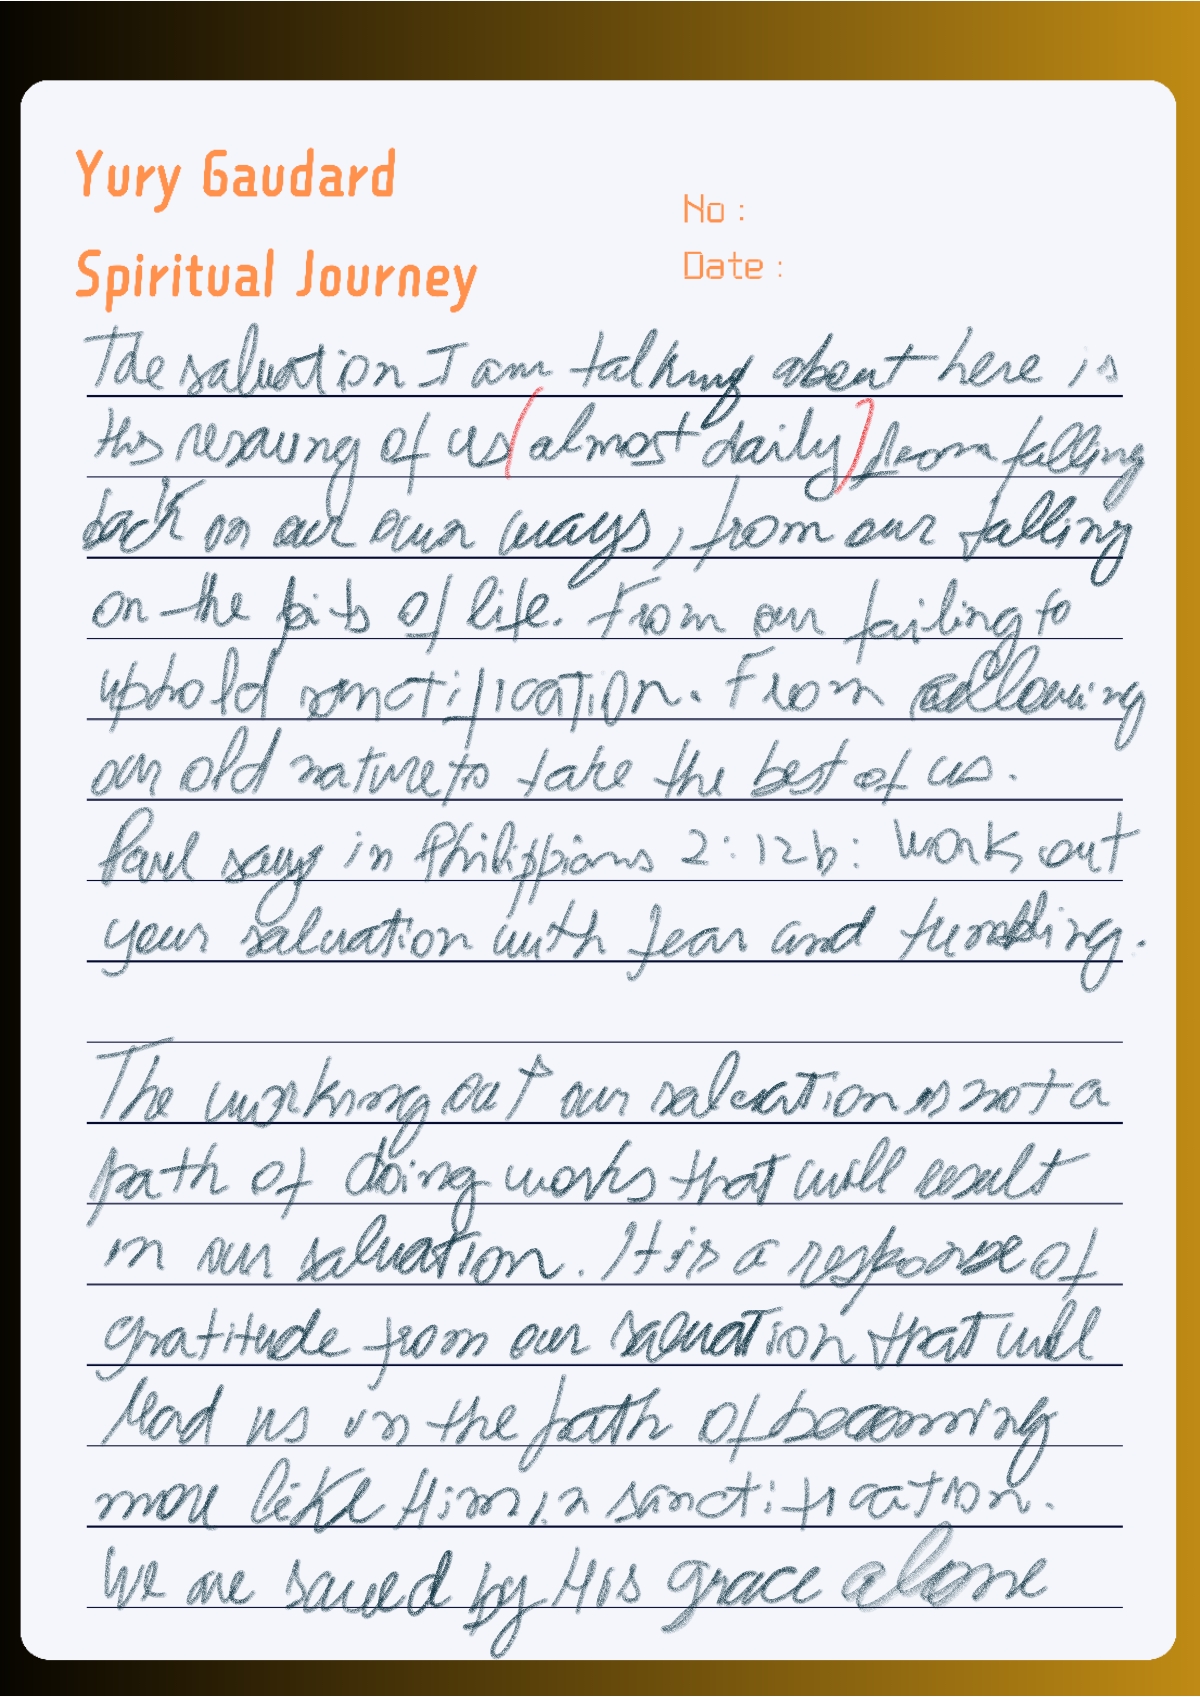 Yury Gaudard
No :
Spiritual Journey
Date :
The salvation I am talking about here is
this resaving of us (almost daily) from falling
back on our own ways, from our falling
on the pits of life. From our failing to
uphold sanctification. From allowing
our old nature to take the best of us.
Paul says in Philippians 2:12b: Work out
your salvation with fear and trembling.
The working out our salvation is not a
path of doing works that will result
in our salvation. It is a response of
gratitude from our salvation that will
lead us in the path of becoming
more like Him in sanctification.
We are saved by His grace alone